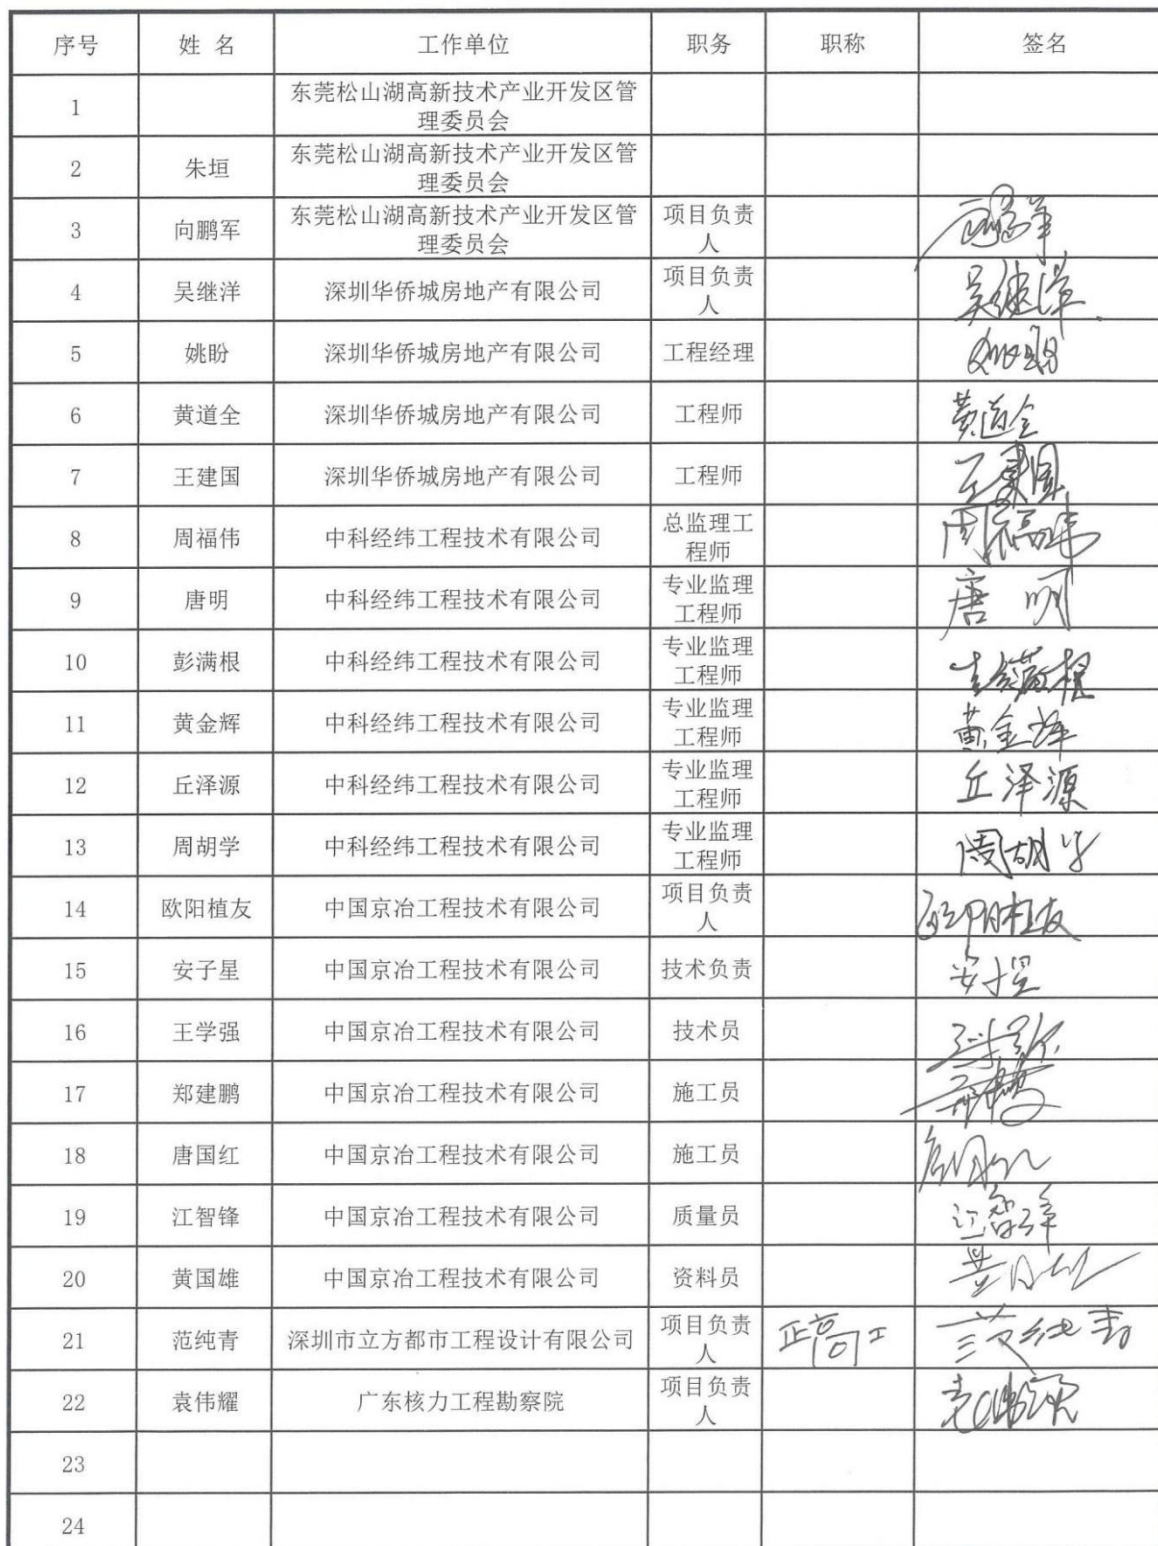 序号 姓 名 工作单位 职务 职称 签名
1 东莞松山湖高新技术产业开发区管
理委员会
2 朱垣 东莞松山湖高新技术产业开发区管
理委员会
3 向鹏军 东莞松山湖高新技术产业开发区管 项目负责
理委员会 人
4 吴继洋 深圳华侨城房地产有限公司 项目负责 吴继洋
人
5 姚盼 深圳华侨城房地产有限公司 工程经理
6 黄道全 深圳华侨城房地产有限公司 工程师 黄道全
7 王建国 深圳华侨城房地产有限公司 工程师 王建国
8 周福伟 中科经纬工程技术有限公司 总监理工 周福伟
程师
9 唐明 中科经纬工程技术有限公司 专业监理 唐明
工程师
10 彭满根 中科经纬工程技术有限公司 专业监理 彭满根
工程师
11 黄金辉 中科经纬工程技术有限公司 专业监理 黄金辉
工程师
12 丘泽源 中科经纬工程技术有限公司 专业监理 丘泽源
工程师
13 周胡学 中科经纬工程技术有限公司 专业监理 周胡学
工程师
14 欧阳植友 中国京冶工程技术有限公司 项目负责 欧阳植友
人
15 安子星 中国京冶工程技术有限公司 技术负责 安子星
16 王学强 中国京冶工程技术有限公司 技术员
17 郑建鹏 中国京冶工程技术有限公司 施工员
18 唐国红 中国京冶工程技术有限公司 施工员
19 江智锋 中国京冶工程技术有限公司 质量员 江智锋
20 黄国雄 中国京冶工程技术有限公司 资料员
21 范纯青 深圳市立方都市工程设计有限公司 项目负责 正高工 范纯青
人
22 袁伟耀 广东核力工程勘察院 项目负责 袁伟耀
人
23
24